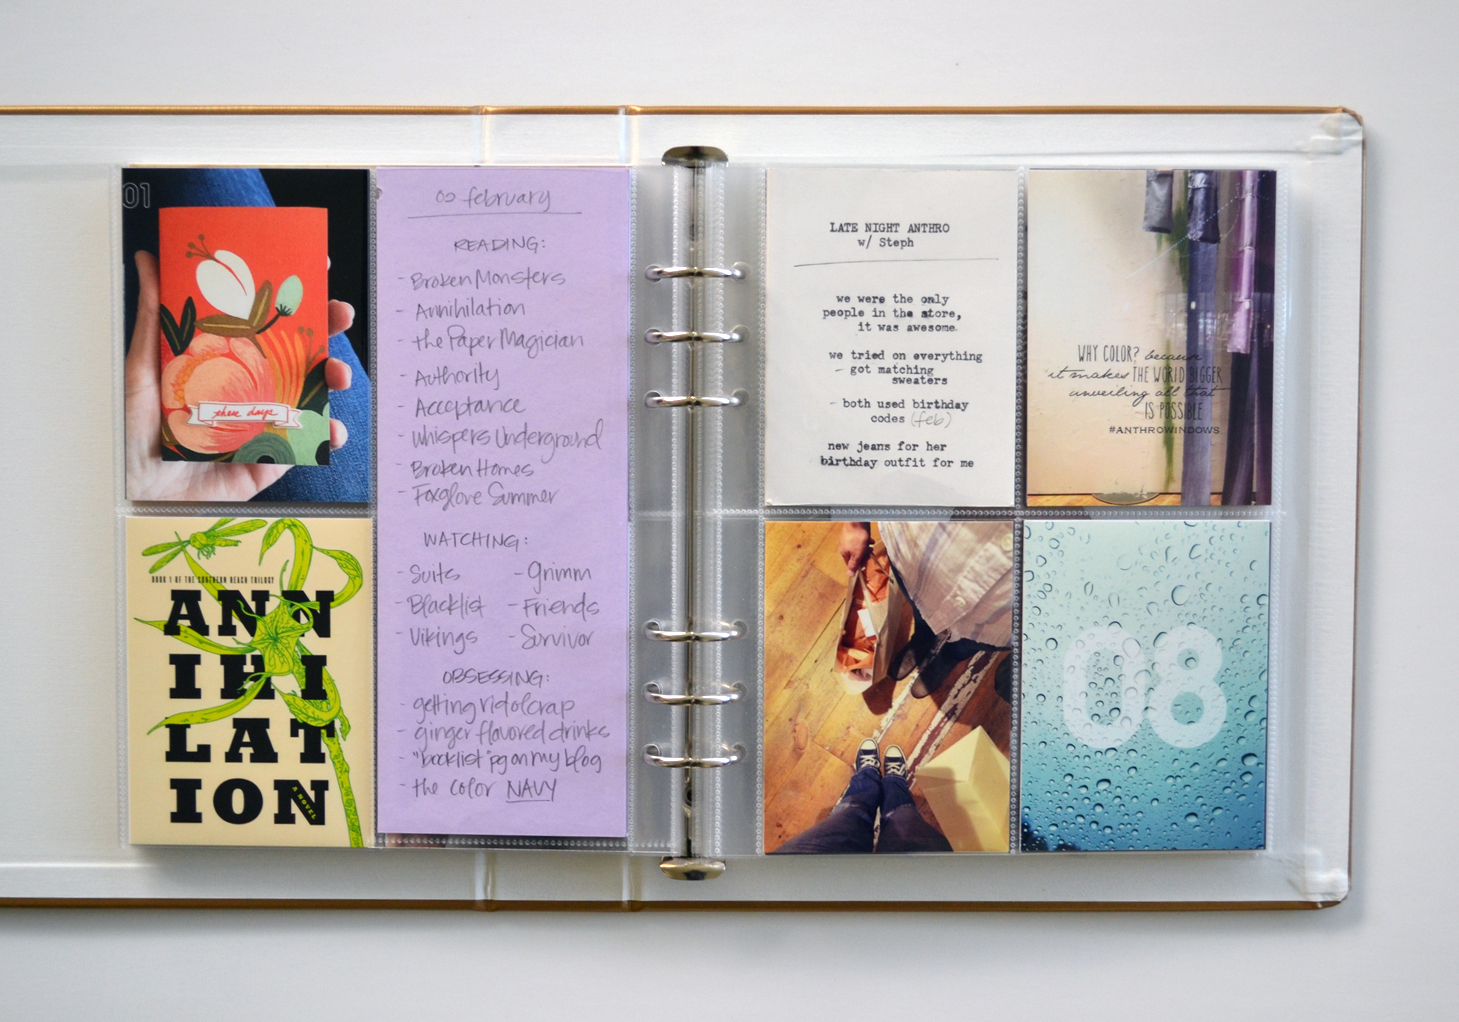 01
these days
BOOK 1 OF THE SOUTHERN REACH TRILOGY
ANN
IHI
LAT
ION
A NOVEL
02 february
READING:
- Broken Monsters
- Annihilation
- the Paper Magician
- Authority
- Acceptance
- Whispers Underground
- Broken Homes
- Foxglove Summer
WATCHING:
- Suits - Grimm
- Blacklist - Friends
- Vikings - Survivor
OBSESSING:
- getting rid of crap
- ginger flavored drinks
- "booklist" pg on my blog
- the color NAVY
LATE NIGHT ANTHRO
w/ Steph
we were the only
people in the store,
it was awesome.
we tried on everything
- got matching
sweaters
- both used birthday
codes (feb)
new jeans for her
birthday outfit for me
WHY COLOR? because
it makes THE WORLD BIGGER
unveiling all that
IS POSSIBLE
#ANTHROWINDOWS
08